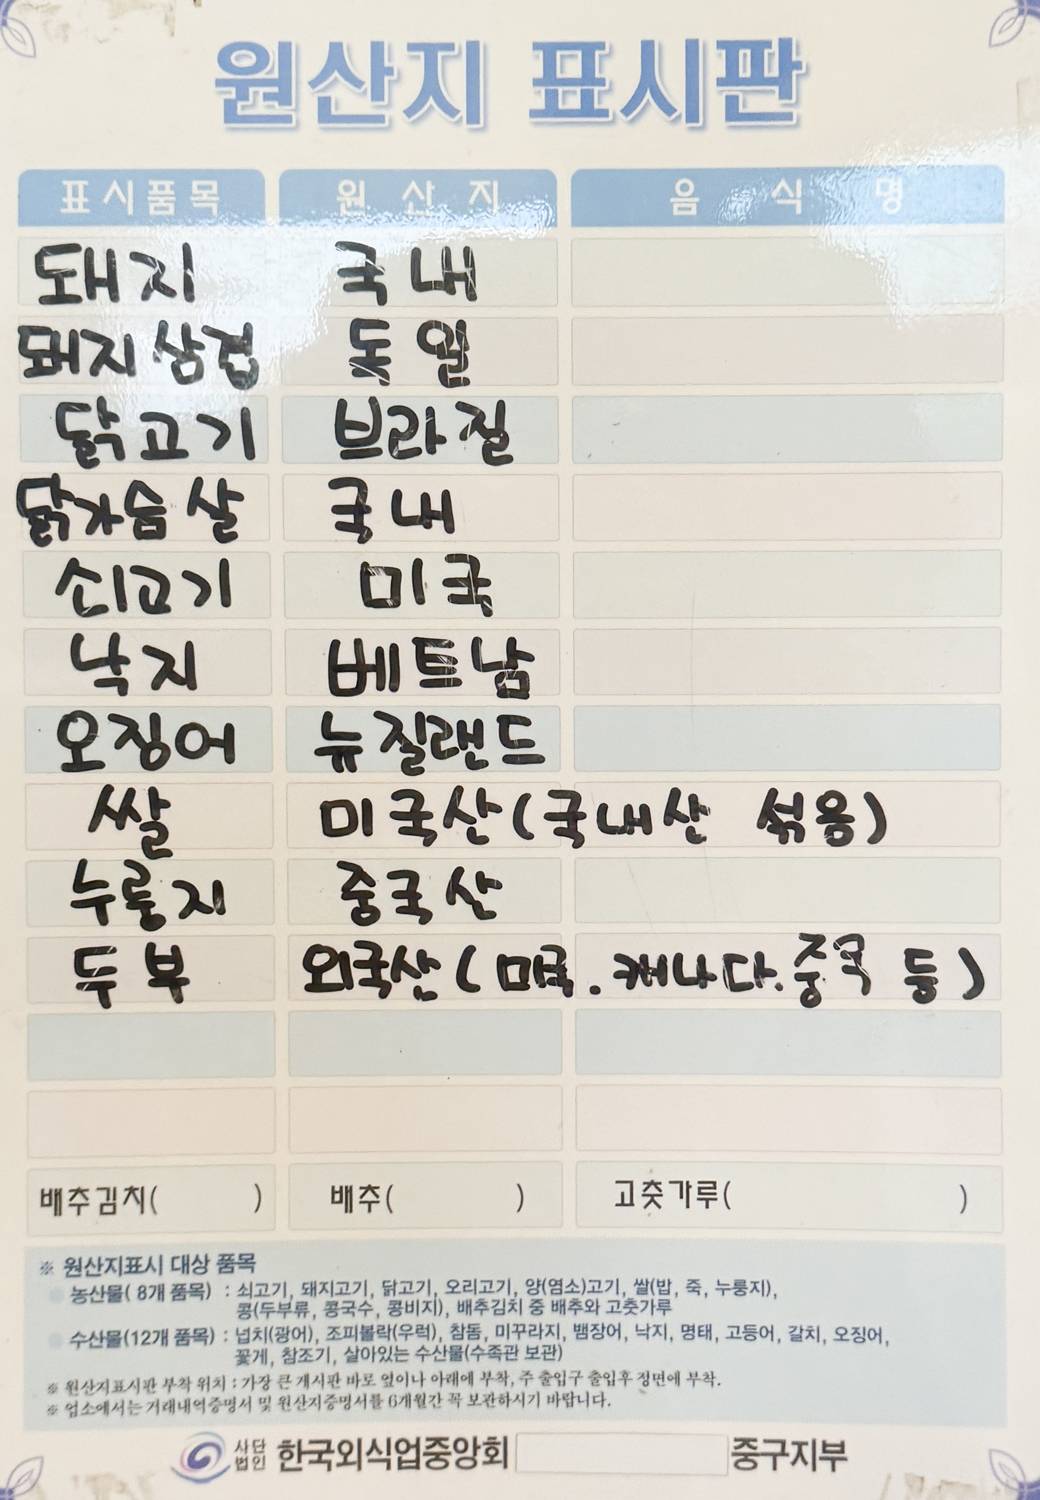 원산지 표시판
표시품목 원산지 음식명
돼지 국내
돼지삼겹 독일
닭고기 브라질
닭가슴살 국내
쇠고기 미국
낙지 베트남
오징어 뉴질랜드
쌀 미국산(국내산 섞음)
누룽지 중국산
두부 외국산(미국.캐나다.중국 등)
배추김치( ) 배추( ) 고춧가루( )
※ 원산지표시 대상 품목
농산물( 8개 품목) : 쇠고기, 돼지고기, 닭고기, 오리고기, 양(염소)고기, 쌀(밥, 죽, 누룽지),
콩(두부류, 콩국수, 콩비지), 배추김치 중 배추와 고춧가루
수산물(12개 품목) : 넙치(광어), 조피볼락(우럭), 참돔, 미꾸라지, 뱀장어, 낙지, 명태, 고등어, 갈치, 오징어,
꽃게, 참조기, 살아있는 수산물(수족관 보관)
※ 원산지표시판 부착 위치 : 가장 큰 게시판 바로 옆이나 아래에 부착, 주 출입구 출입후 정면에 부착.
※ 업소에서는 거래내역증명서 및 원산지증명서를 6개월간 꼭 보관하시기 바랍니다.
사단법인 한국외식업중앙회 중구지부